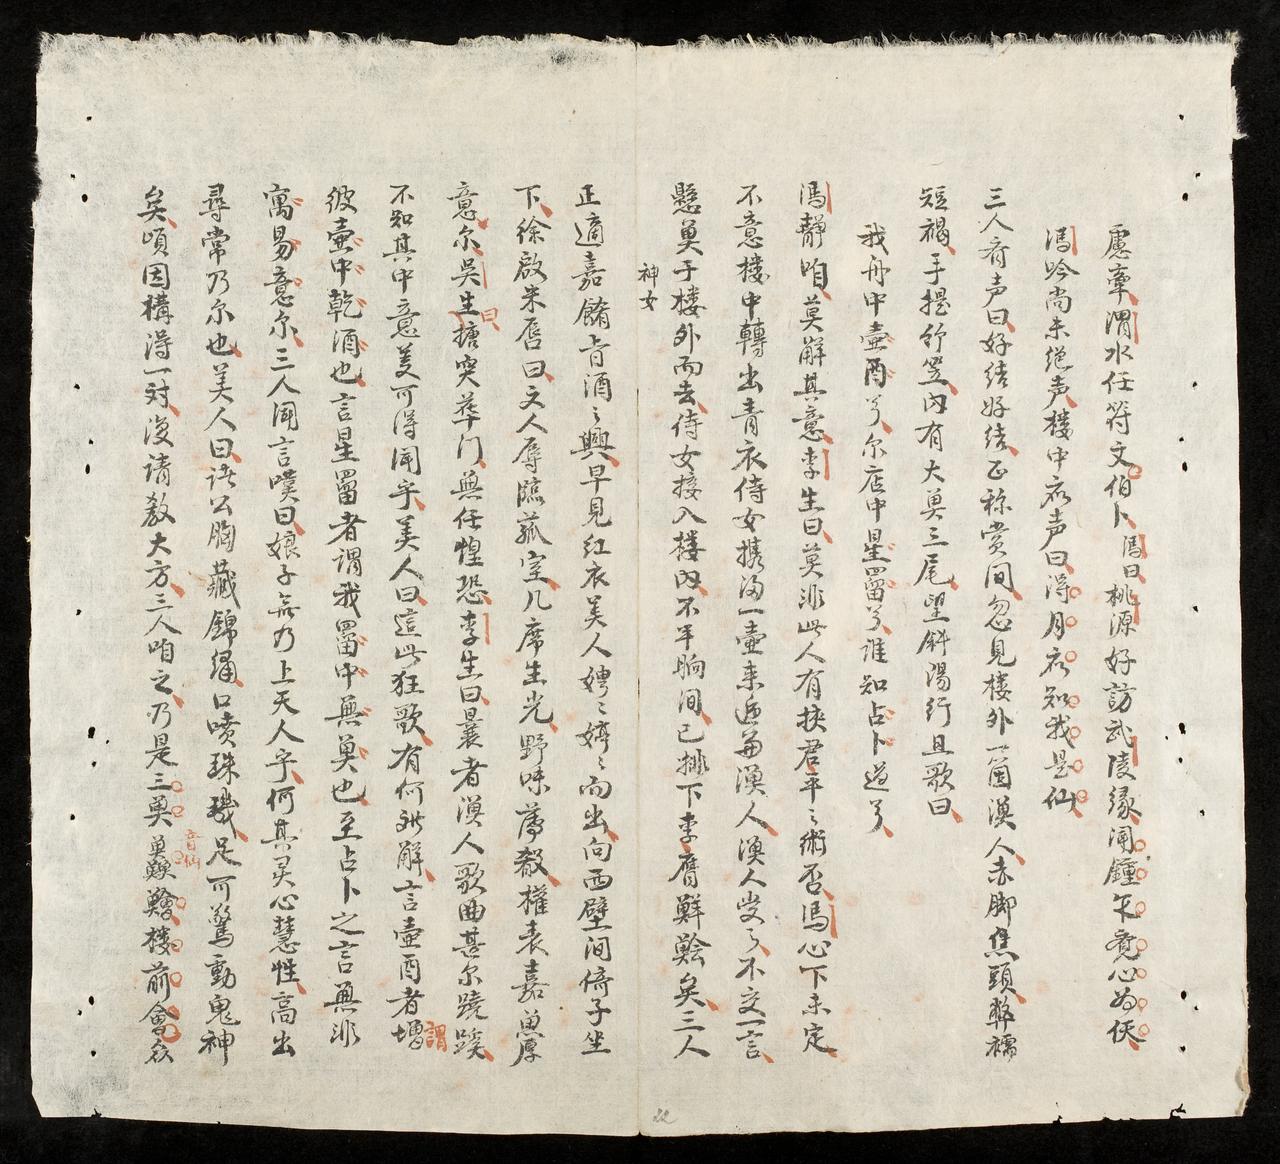 慮牽渭水任符文伯卜馮曰桃源好訪武陵緣聞鐘乍覺心為伕
馮吟尚未絕声楼中應声曰得月應知我是仙
三人齐声曰好結好結正称赏间忽見楼外一箇漢人赤脚焦頭弊襦
短褐手提竹笠内有大魚三尾望斜湯行且歌曰
我舟中壺酉兮尔店中星罶兮誰知占卜道兮
馮靜咱莫解其意李生曰莫非此人有挾君平之術否馮心下未定
不意楼中轉出青衣侍女携酒一壺来迎翁漁人漁人受了不交一言
懸魚于楼外而去侍女接入楼内不平晌间已排下李膺鮮鱠矣三人
神女
正適嘉餚旨酒之興早見紅衣美人娉々婷々而出向西壁间倚子坐
下徐啟朱唇曰文人辱臨菰室几席生光野味薄殽權表嘉魚厚
意尔吳生曰搪突華门無任惶恐李生曰曩者漁人歌曲甚尔蹺蹊
不知其中意义可得闻乎美人曰這些狂歌有何难解言壺酉者謂
彼壺中乾酒也言星罶者謂我罶中無魚也至占卜之言無非
寓易意尔三人闻言嘆曰娘子無乃上天人乎何其灵心慧性高出
尋常乃尔也美人曰諸公胸藏錦繡口噴珠璣足可驚動鬼神
矣頃因構得一对復請教大方三人咱之乃是三魚鱻鱠楼前會众
音仙